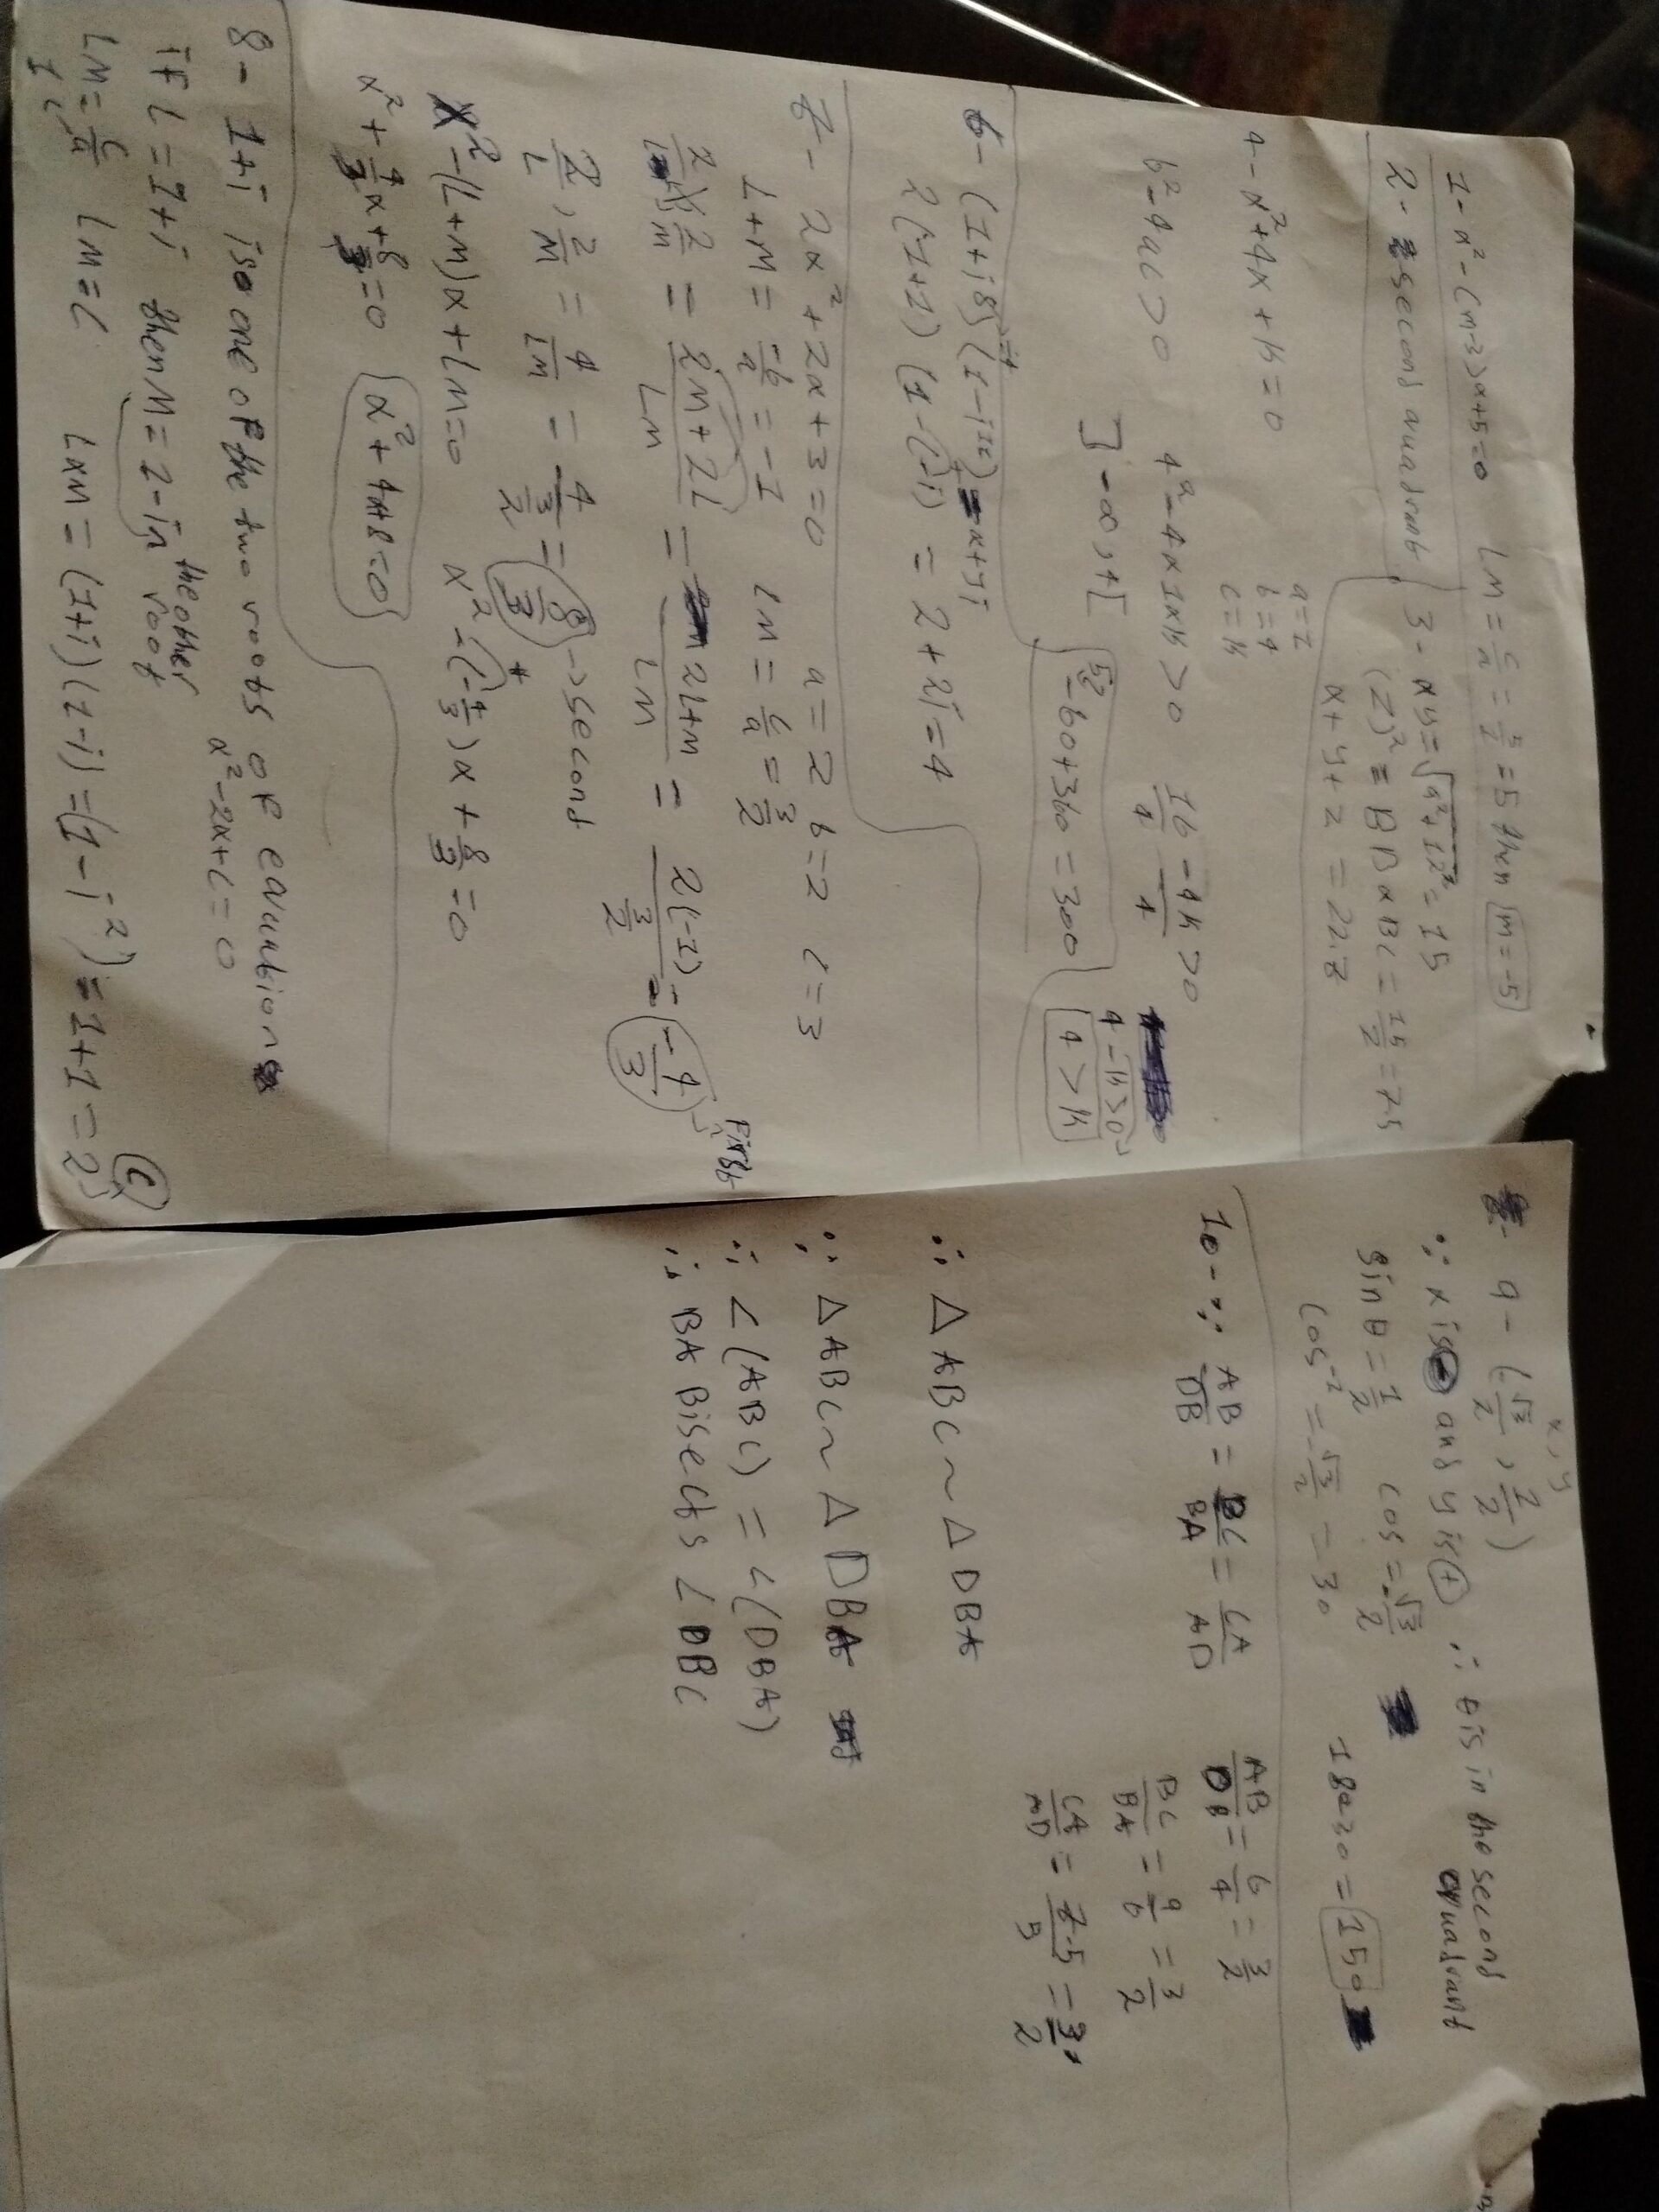 1- x² - (m-3)x+5=0 LM = c/a = 5/1 = 5 then m = -5
2- second quadrant
3- xy = √9²+12² = 15
(z)² = BD × BC = 15/2 = 7.5
x + y + z = 22.5
4- x²+4x+k=0
a=1
b=4
c=k
b²-4ac>0 4²-4×1×k>0 16/4 - 4k/4 >0
4-k>0
]-∞,4[ 4>k
5- -60+360=300
6- (1+i⁸)(1-i¹¹) = x+yi
2(1+1)(1-(-i)) = 2+2i = 4
7- 2x²+2x+3=0 a=2 b=2 c=3
L+M = -b/a = -1 LM = c/a = 3/2
2/L + 2/M = 2M+2L/LM = 2L+M/LM = 2(-1)/(3/2) = -4/3 -> First
2/L, 2/M = 4/LM = 4/(3/2) = 8/3 -> second
x²-(L+M)x+LM=0 x²-(-4/3)x+8/3=0
x²+4/3x+8/3=0 x²+4x+8=0
8- 1+i is one of the two roots of equation
x²-2x+c=0
if L=1+i then M=1-i the other root
LM = c/a LM=c L×M=(1+i)(1-i)=(1-i²)=1+1=2 (c)
x, y
9- (√3/2, 1/2)
∵ x is - and y is + ∴ θ is in the second quadrant
sin θ = 1/2 cos = -√3/2
cos⁻¹ = √3/2 = 30 180-30 = 150
10- ∵ AB/DB = BC/BA = CA/AD AB/DB = 6/4 = 3/2
BC/BA = 9/6 = 3/2
CA/AD = 7.5/5 = 3/2
∴ △ABC ~ △DBA
∵ △ABC ~ △DBA
∴ ∠(ABC) = ∠(DBA)
∴ BA Bisects ∠DBC